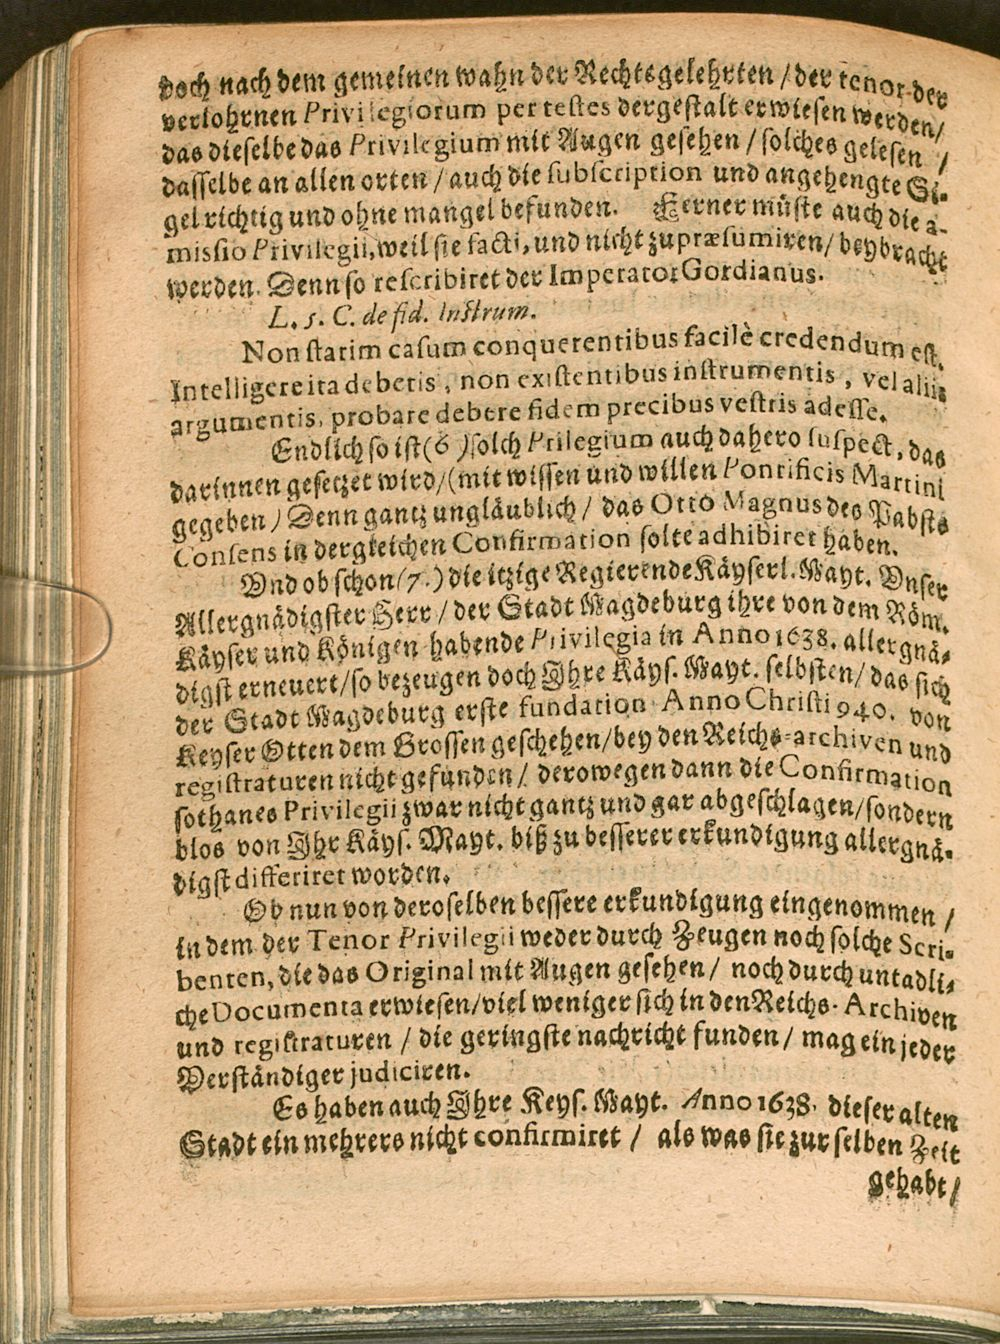 doch nach dem gemeinen wahn der Rechtsgelehrten / der tenor der
verlohrnen Privilegiorum per testes dergestalt erwiesen werden /
das dieselbe das Privilegium mit Augen gesehen / solches gelesen /
dasselbe an allen orten / auch die subscription und angehengte Si-
gel richtig und ohne mangel befunden. Ferner müste auch die a-
missio Privilegii, weil sie facti, und nicht zu præsumiren / beybracht
werden. Denn so rescribiret der Imperator Gordianus.
L. 5. C. de fid. Instrum.
Non statim casum conquerentibus facilè credendum est.
Intelligere ita debetis, non existentibus instrumentis, vel aliis
argumentis, probare debere fidem precibus vestris adesse.
Endlich so ist (6) solch Prilegium auch dahero suspect, das
darinnen gesetzet wird / (mit wissen und willen Pontificis Martini
gegeben) Denn gantz ungläublich / das Otto Magnus des Pabsts
Consens in dergleichen Confirmation solte adhibiret haben.
Vnd ob schon (7.) die itzige Regierende Käyserl. Mayt. Vnser
Allergnädigster Herr / der Stadt Magdeburg ihre von dem Röm.
Käyser und Königen habende Privilegia in Anno 1638. allergnä-
digst erneuert / so bezeugen doch Ihre Käys. Mayt. selbsten / das sich
der Stadt Magdeburg erste fundation Anno Christi 940. von
Keyser Otten dem Grossen geschehen / bey den Reichs-archiven und
registraturen nicht gefunden / derowegen dann die Confirmation
sothanes Privilegii zwar nicht gantz und gar abgeschlagen / sondern
blos von Ihr Käys. Mayt. biß zu besserer erkundigung allergnä-
digst differiret worden.
Ob nun von deroselben bessere erkundigung eingenommen /
in dem der Tenor Privilegii weder durch Zeugen noch solche Scri-
benten, die das Original mit Augen gesehen / noch durch untadli-
che Documenta erwiesen / viel weniger sich in den Reichs-Archiven
und registraturen / die geringste nachricht funden / mag ein jeder
Verständiger judiciren.
Es haben auch Ihre Keys. Mayt. Anno 1638. dieser alten
Stadt ein mehrers nicht confirmiret / als was sie zur selben Zeit
gehabt /